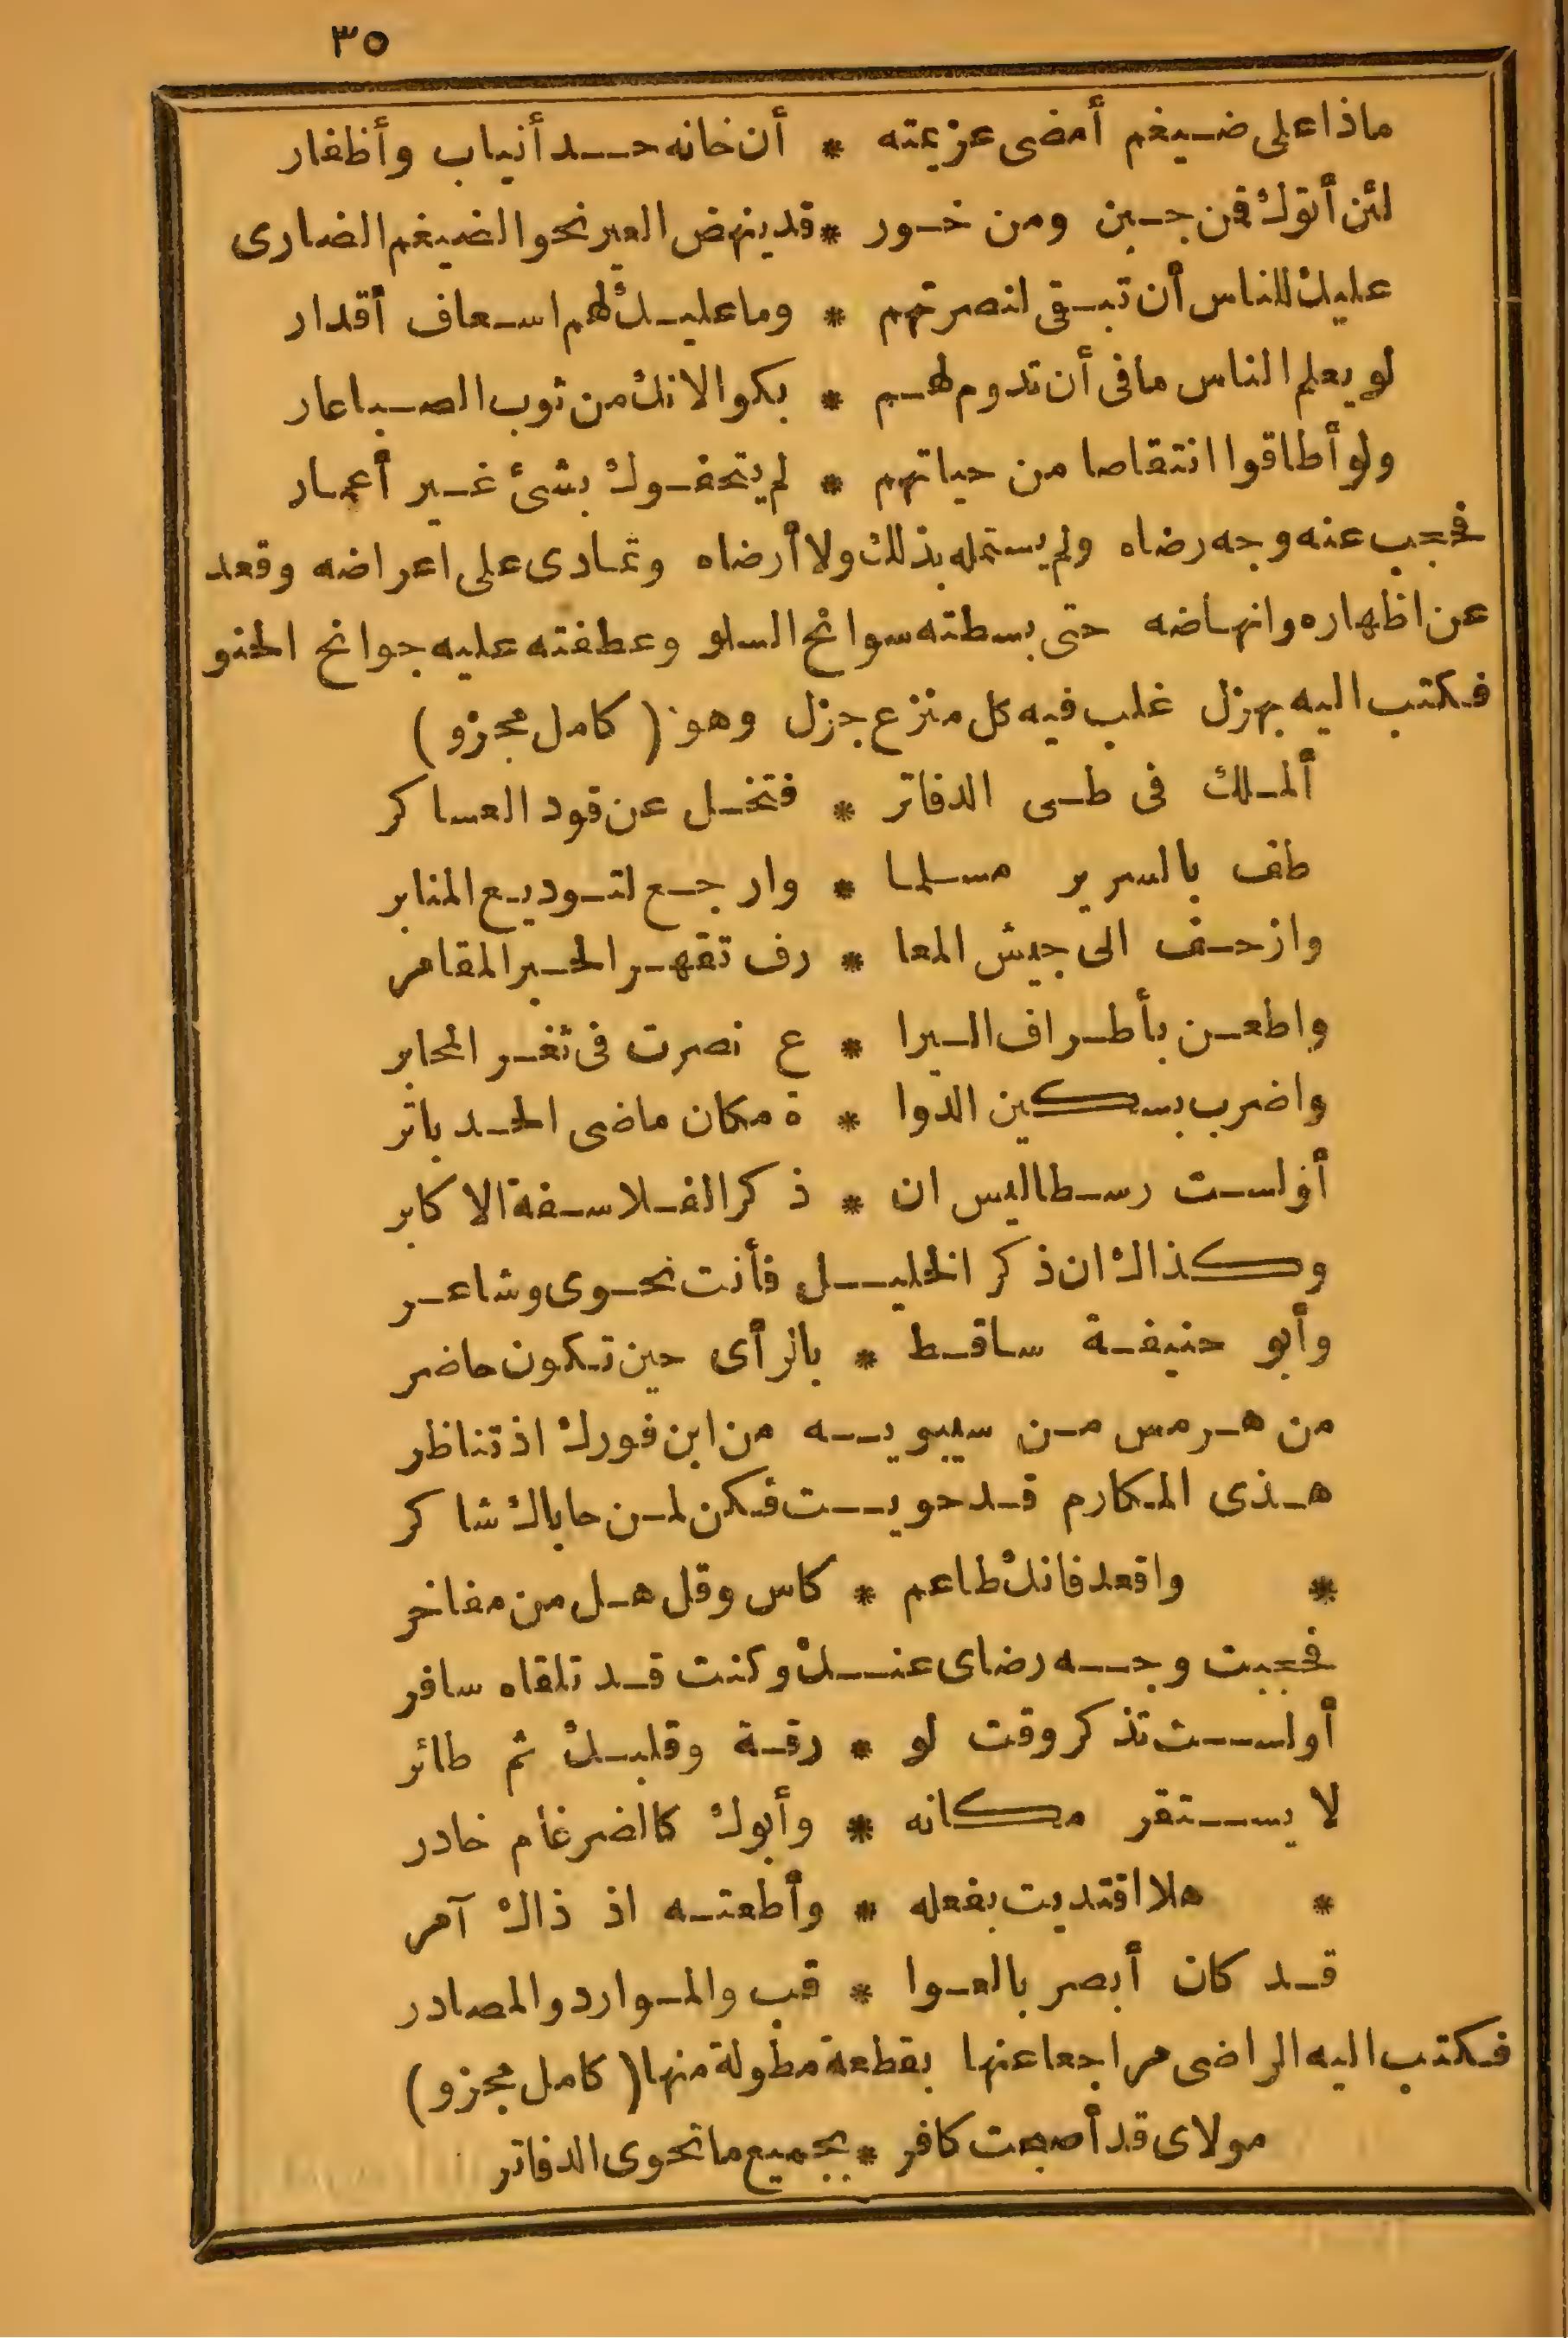 ٣٥
ماذا على ضيغم أمضى عزيمته * أن خانه حد أنياب وأظفار
لئن أتوك فمن جبن ومن خور * قد ينهض العير نحو الضيغم الضارى
عليك للناس أن تبقى لنصرتهم * وما عليك لهم اسعاف أقدار
لو يعلم الناس ما فى أن تدوم لهم * بكوا لانك من ثوب الصبا عار
ولو أطاقوا انتقاصا من حياتهم * لم يتحفوك بشئ غير أعمار
فحجب عنه وجه رضاه ولم يستمله بذلك ولا أرضاه وتمادى على اعراضه وقعد
عن اظهاره وانهاضه حتى بسطته سوانح السلو وعطفته عليه جوانح الحنو
فكتب اليه بهزل غلب فيه كل منزع جزل وهو (كامل مجزو)
ألملك فى طى الدفاتر * فتخل عن قود العساكر
طف بالسرير مسلما * وارجع لتوديع المنابر
وازحف الى جيش المعا * رف تقهر الحبر المقامر
واطعن بأطراف اليرا * ع نصرت فى ثغر المحابر
واضرب بسكين الدوا * ة مكان ماضى الحد باتر
أو لست رسطاليس ان * ذكر الفلاسفة الاكابر
وكذاك ان ذكر الخليل فأنت نحوى وشاعر
وأبو حنيفة ساقط * بالرأى حين تكون حاضر
من هرمس من سيبويه من ابن فورك اذ تناظر
هذى المكارم قد حويت فكن لمن حاباك شاكر
* واقعد فانك طاعم * كاس وقل هل من مفاخر
فحجبت وجه رضاى عنك وكنت قد تلقاه سافر
أو لست تذكر وقت لو * رقة وقلبك ثم طائر
لا يستقر مكانه * وأبوك كالضرغام خادر
* هلا اقتديت بفعله * وأطعته اذ ذاك آمر
قد كان أبصر بالعوا * قب والموارد والمصادر
فكتب اليه الراضى مراجعا عنها بقطعة مطولة منها (كامل مجزو)
مولاى قد أصبحت كافر * بجميع ما تحوى الدفاتر